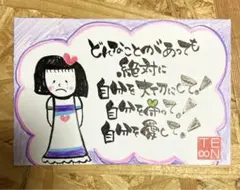 どんなことがあっても
絶対に
自分を大切にして!
自分を守って!
自分を愛して!
TE
N